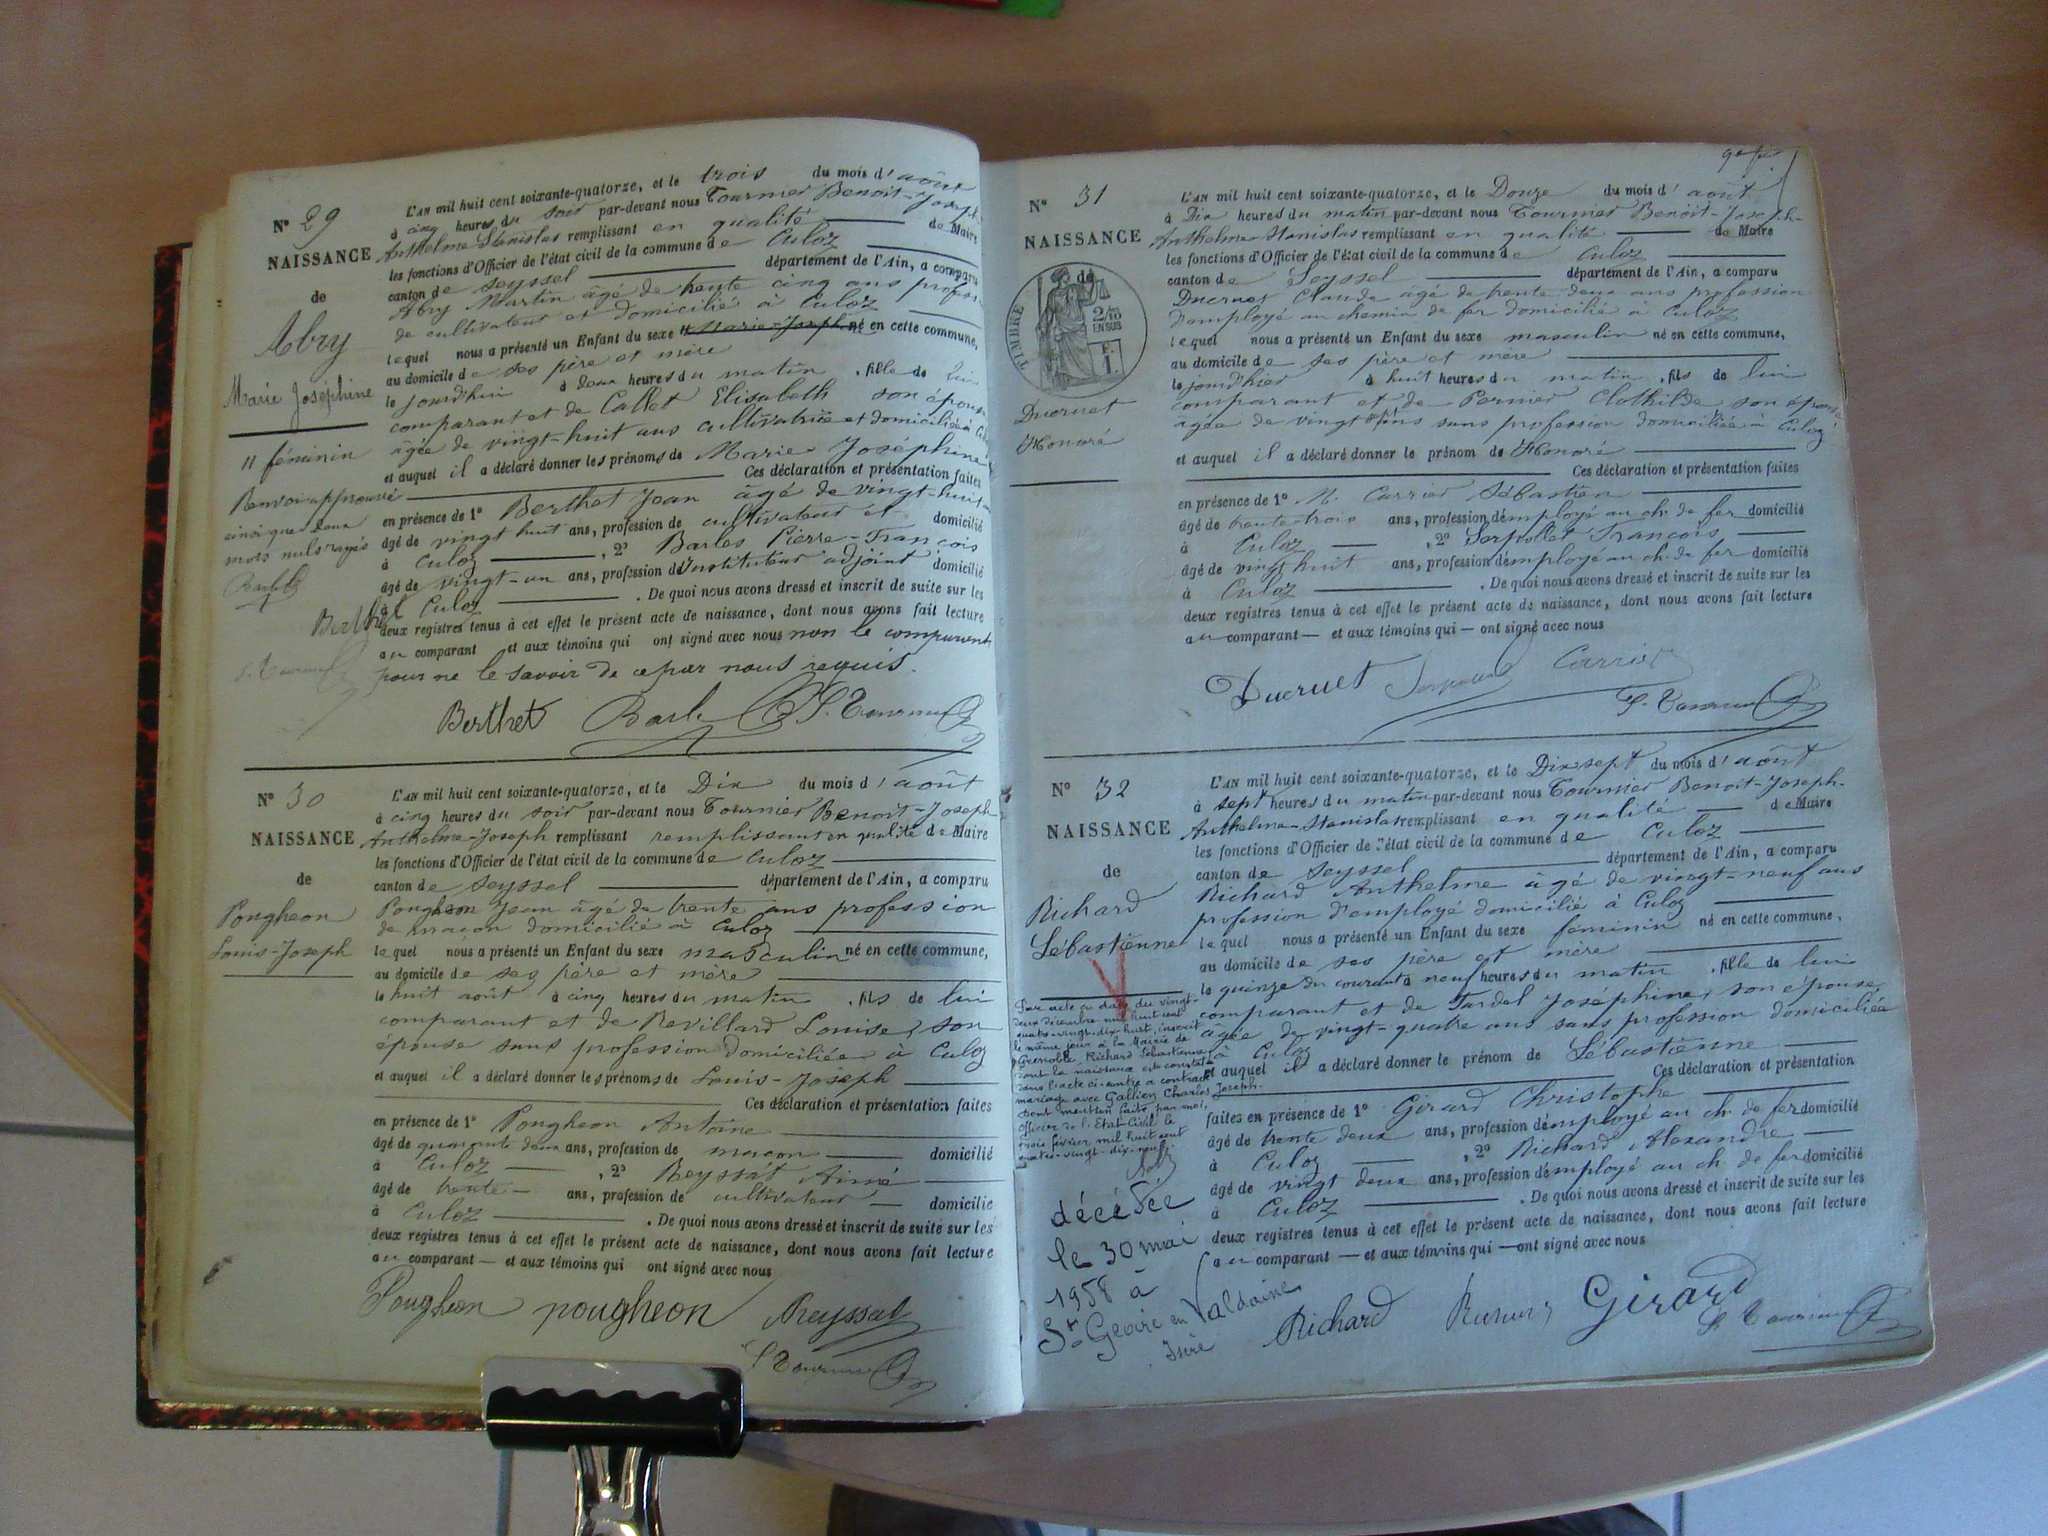 N° 29
NAISSANCE
de
Abry
Marie Joséphine
" féminin
Renvoi approuvé
ainsi que deux
mots nuls rayés
Berthet
L'AN mil huit cent soixante-quatorze, et le trois du mois d'août
à cinq heures du soir par-devant nous Tournier Benoit-Joseph-
Anthelme-Stanislas remplissant en qualité de Maire
les fonctions d'Officier de l'état civil de la commune de Culoz
canton de Seyssel département de l'Ain, a comparu
Abry Martin âgé de trente cinq ans profession
de cultivateur et domicilié à Culoz
lequel nous a présenté un Enfant du sexe " Marie-Joseph né en cette commune,
au domicile de ses père et mère
le jourd'hui à deux heures du matin, fille de lui
comparant et de Callet Elisabeth son épouse
âgée de vingt-huit ans cultivatrice et domiciliée à Culoz
et auquel il a déclaré donner les prénoms de Marie Joséphine
Ces déclaration et présentation faites
en présence de 1° Berthet Jean âgé de vingt-huit ans
âgé de vingt huit ans, profession de cultivateur et domicilié
à Culoz, 2° Barles Pierre-François
âgé de vingt-un ans, profession d'instituteur adjoint domicilié
à Culoz. De quoi nous avons dressé et inscrit de suite sur les
deux registres tenus à cet effet le présent acte de naissance, dont nous avons fait lecture
au comparant et aux témoins qui ont signé avec nous non le comparant
pour ne le savoir de ce par nous requis.
Berthet S. Tournier
N° 30
NAISSANCE
de
Pongheon
Louis-Joseph
L'AN mil huit cent soixante-quatorze, et le Dix du mois d'août
à cinq heures du soir par-devant nous Tournier Benoit-Joseph
Anthelme-Joseph remplissant remplissant en qualité de Maire
les fonctions d'Officier de l'état civil de la commune de Culoz
canton de Seyssel département de l'Ain, a comparu
Pongheon Jean âgé de trente ans profession
de maçon domicilié à Culoz
lequel nous a présenté un Enfant du sexe masculin né en cette commune,
au domicile de ses père et mère
le huit août à cinq heures du matin, fils de lui
comparant et de Revillard Louise, son
épouse sans profession domiciliée à Culoz
et auquel il a déclaré donner les prénoms de Louis-Joseph
Ces déclaration et présentation faites
en présence de 1° Pongheon Antoine
âgé de quarante deux ans, profession de maçon domicilié
à Culoz, 2° Reyssat Aimé
âgé de trente ans, profession de cultivateur domicilié
à Culoz. De quoi nous avons dressé et inscrit de suite sur les
deux registres tenus à cet effet le présent acte de naissance, dont nous avons fait lecture
au comparant — et aux témoins qui ont signé avec nous
Pougheon pougheon Reyssat
S. Tournier
N° 31
NAISSANCE
de
TIMBRE
2/10 EN SUS
F. 1.
Ducruet
Honoré
L'AN mil huit cent soixante-quatorze, et le Douze du mois d'août
à Dix heures du matin par-devant nous Tournier Benoît-Joseph-
Anthelme-Stanislas remplissant en qualité de Maire
les fonctions d'Officier de l'état civil de la commune de Culoz
canton de Seyssel département de l'Ain, a comparu
Ducruet Claude âgé de trente deux ans profession
d'employé au chemin de fer domicilié à Culoz
lequel nous a présenté un Enfant du sexe masculin né en cette commune,
au domicile de ses père et mère
le jourd'hier à huit heures du matin, fils de lui
comparant et de Pernier Clothilde son épouse
âgée de vingt sept ans sans profession domiciliée à Culoz
et auquel il a déclaré donner le prénom de Honoré
Ces déclaration et présentation faites
en présence de 1° M. Carrier Sébastien
âgé de trente-trois ans, profession d'employé au ch. de fer domicilié
à Culoz, 2° Serpollet François
âgé de vingt huit ans, profession d'employé au ch. de fer domicilié
à Culoz. De quoi nous avons dressé et inscrit de suite sur les
deux registres tenus à cet effet le présent acte de naissance, dont nous avons fait lecture
au comparant — et aux témoins qui — ont signé avec nous
Ducruet Serpollet Carrier
S. Tournier
N° 32
NAISSANCE
de
Richard
Sébastienne
Par acte en date du vingt-
deux décembre mil huit cent
quatre-vingt-dix-huit, inscrit
le même jour à la Mairie de
Grenoble Richard Sébastienne
dont la naissance est constatée
dans l'acte ci-contre a contracté
mariage avec Gallien Charles Joseph.
Dont mention faite par moi,
Officier de l'Etat Civil le
trois février mil huit cent
quatre-vingt-dix-neuf.
décédée
le 30 mai
1958 à
St Geoire en Valdaine
Isère
L'AN mil huit cent soixante-quatorze, et le Dix sept du mois d'août
à sept heures du matin par-devant nous Tournier Benoit-Joseph-
Anthelme-Stanislas remplissant en qualité de Maire
les fonctions d'Officier de l'état civil de la commune de Culoz
canton de Seyssel département de l'Ain, a comparu
Richard Anthelme âgé de vingt-neuf ans
profession d'employé domicilié à Culoz
lequel nous a présenté un Enfant du sexe féminin né en cette commune,
au domicile de ses père et mère
le quinze du courant à neuf heures du matin, fille de lui
comparant et de Tardel Joséphine, son épouse,
âgée de vingt-quatre ans sans profession domiciliée
à Culoz
et auquel il a déclaré donner le prénom de Sébastienne
Ces déclaration et présentation
faites en présence de 1° Girard Christophe
âgé de trente deux ans, profession d'employé au ch. de fer domicilié
à Culoz, 2° Richard Alexandre
âgé de vingt deux ans, profession d'employé au ch. de fer domicilié
à Culoz. De quoi nous avons dressé et inscrit de suite sur les
deux registres tenus à cet effet le présent acte de naissance, dont nous avons fait lecture
au comparant — et aux témoins qui — ont signé avec nous
Richard Girard
S. Tournier